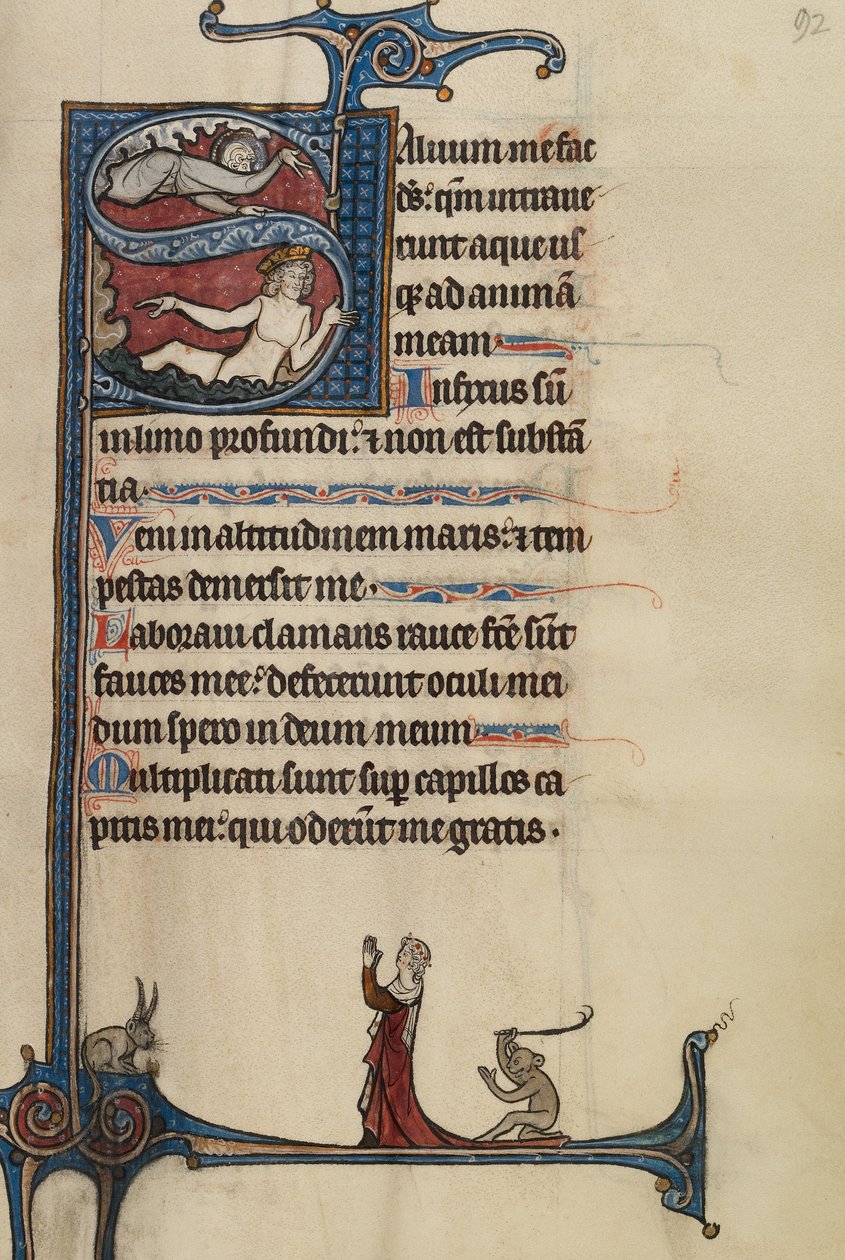 92
Saluum me fac
ds̄: qm̄ intraue
runt aque us
qȝ ad animā
meam
Infixus sū
in limo profundi: ⁊ non est substā
tia.
Veni in altitudinem maris: ⁊ tem
pestas demersit me.
Laboraui clamans rauce fc̄e sūt
fauces mee: defecerunt oculi mei
dum spero in deum meum
Multiplicati sunt sup̲ capillos ca
pitis mei: qui oderūt me gratis.